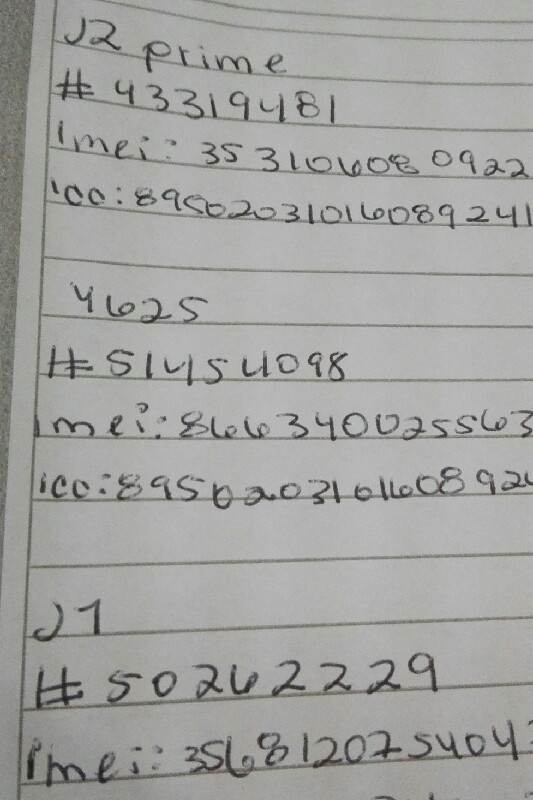 J2 prime
# 43319481
Imei: 353106080922
icc: 89502031016089241
4625
# 51454098
Imei: 866340025563
icc: 895020310160892
J1
# 50262229
Imei: 356812075404